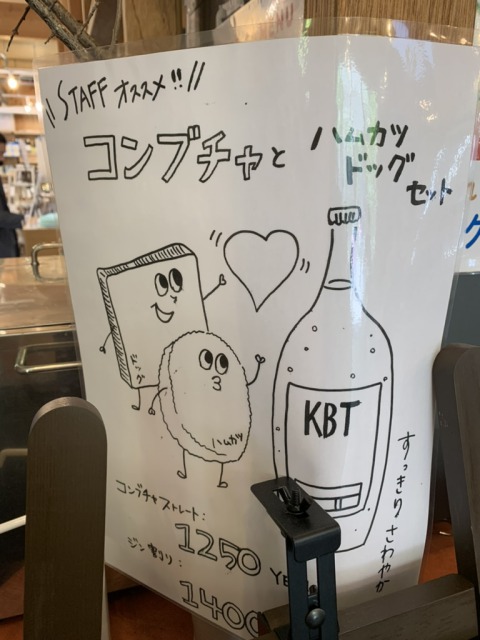 STAFF オススメ!!
コンブチャと
ハムカツ
ドッグ
セット
ハムカツ
KBT
すっきり さわやか
コンブチャストレート:
1250 YE
ジン割り:
1400